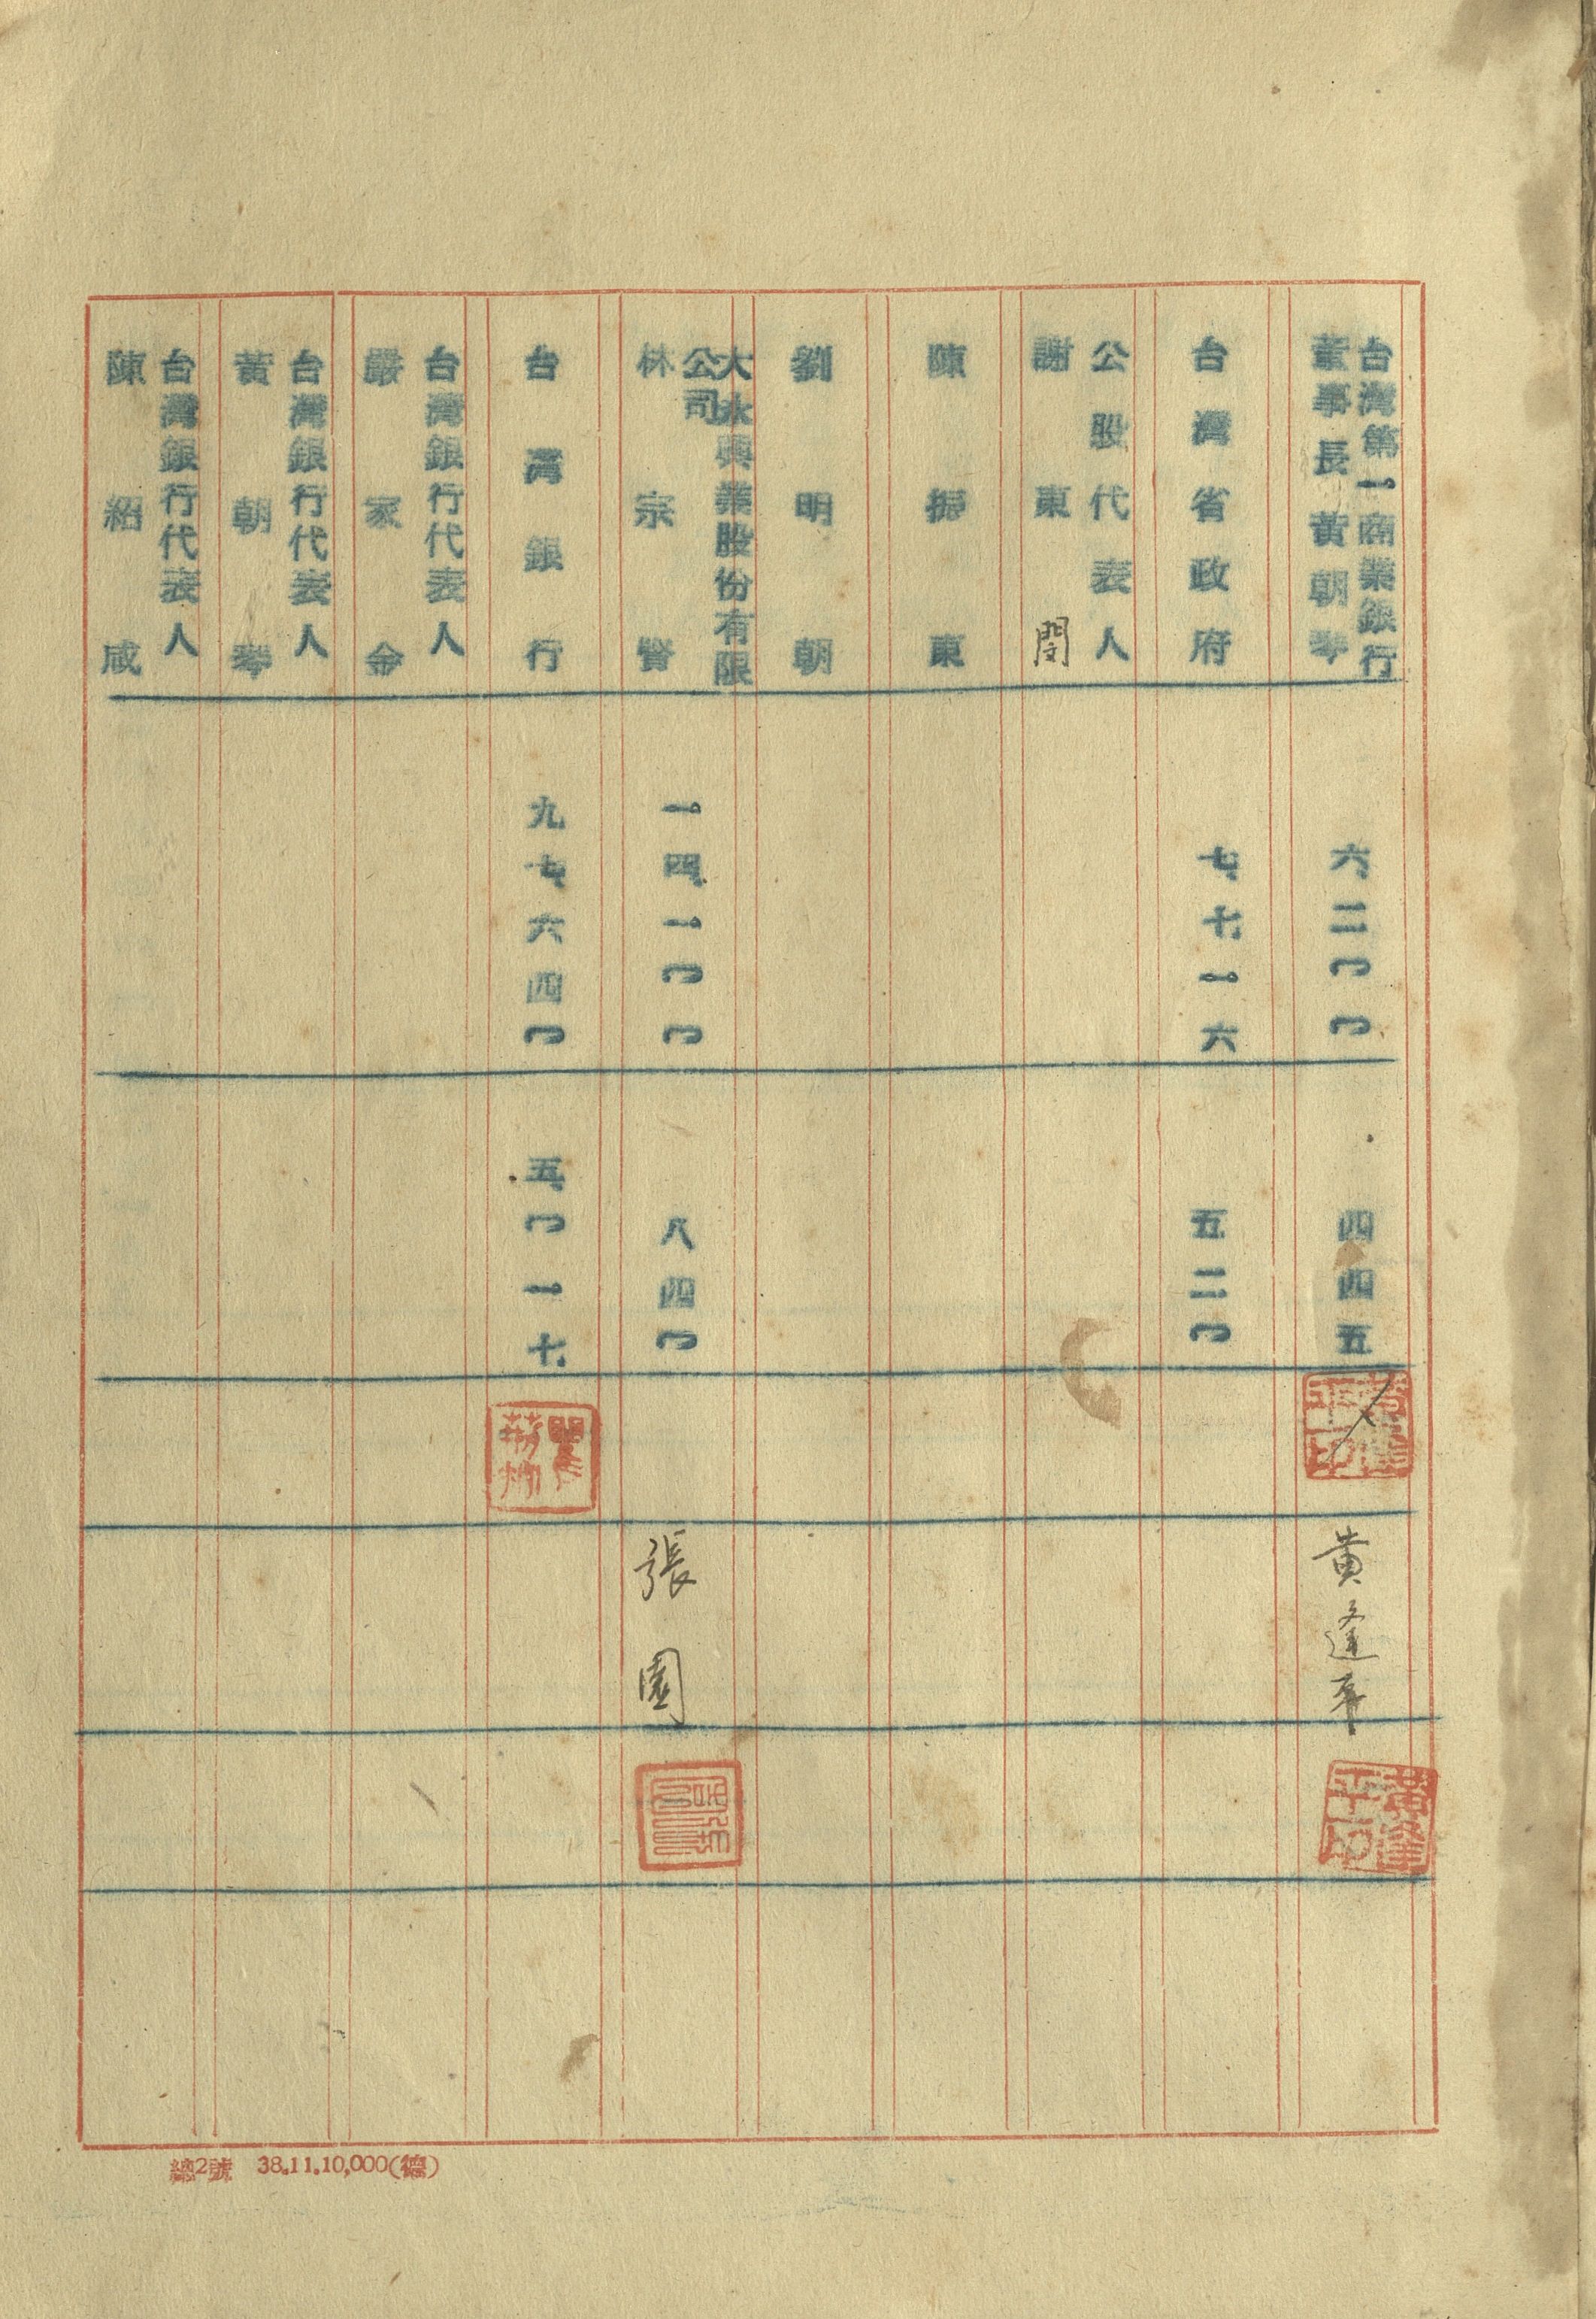 台灣第一商業銀行
董事長黃朝琴
六、二〇〇
四四五
黃逢平
黃逢平印
台灣省政府
七、七一六
五二〇
公股代表人
謝東閔
陳振東
劉明朝
大永興業股份有限
公司
林宗賢
一四、一〇〇
八四〇
張園
台灣銀行
九七、六四〇
五、〇一七
台灣銀行代表人
嚴家金
台灣銀行代表人
黃朝琴
台灣銀行代表人
陳紹咸
總2號 38.11.10,000(德)